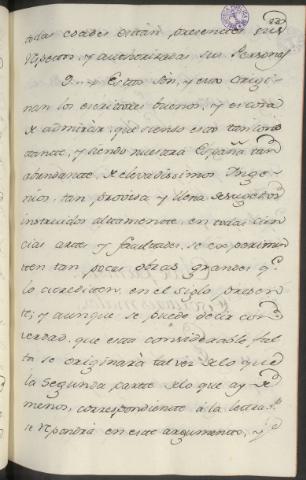 todas edades están presentes sus
respetos, y autherizadas sus Personas
Estos son, y esto origi-
nan los escritores buenos, y es cosa
de admirar, que siendo esto tan cons
tante, y siendo nuestra España tan
abundante, de elevadissimos Inge-
nios, tan provista y llena de sugetos
instruidos altamente en todas cien
cias artes y facultades, se experimen
ten tan pocas obras grandes q.e
lo acrediten, en el siglo presen-
te; y aunque se puede decir con
verdad, que esta considerable fal
ta se originará tal vez de lo que
la segunda parte de lo que ay de
menos, correspondiente á la letra
se pondrá en este argumento, y